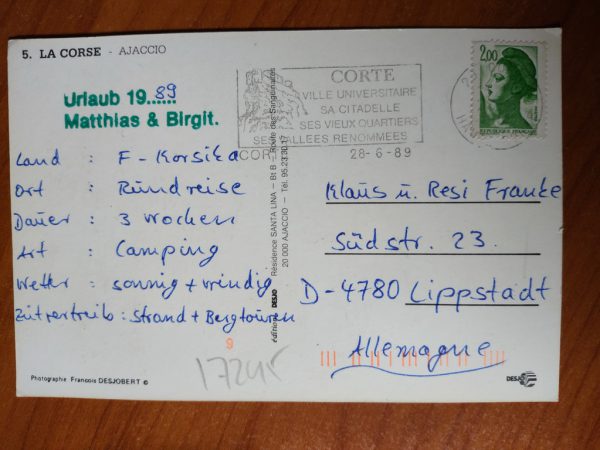 5. LA CORSE - AJACCIO
Urlaub 19..89....
Matthias & Birgit.
Land : F - Korsika
Ort : Rundreise
Dauer : 3 Wochen
Art : Camping
Wetter : sonnig + windig
Zeitvertreib : Strand + Bergtouren
9
17245
Photographie Francois DESJOBERT ©
éditions DESJO Résidence SANTA LINA — Bt B — Route des Sanguinaires
20 000 AJACCIO — Tél. 95.23.30.17
CORTE
VILLE UNIVERSITAIRE
SA CITADELLE
SES VIEUX QUARTIERS
SES VALLEES RENOMMEES
28-6-89
2,00
REPUBLIQUE FRANÇAISE
Klaus u. Resi Franke
Südstr. 23.
D-4780 Lippstadt
Allemagne
DESJO